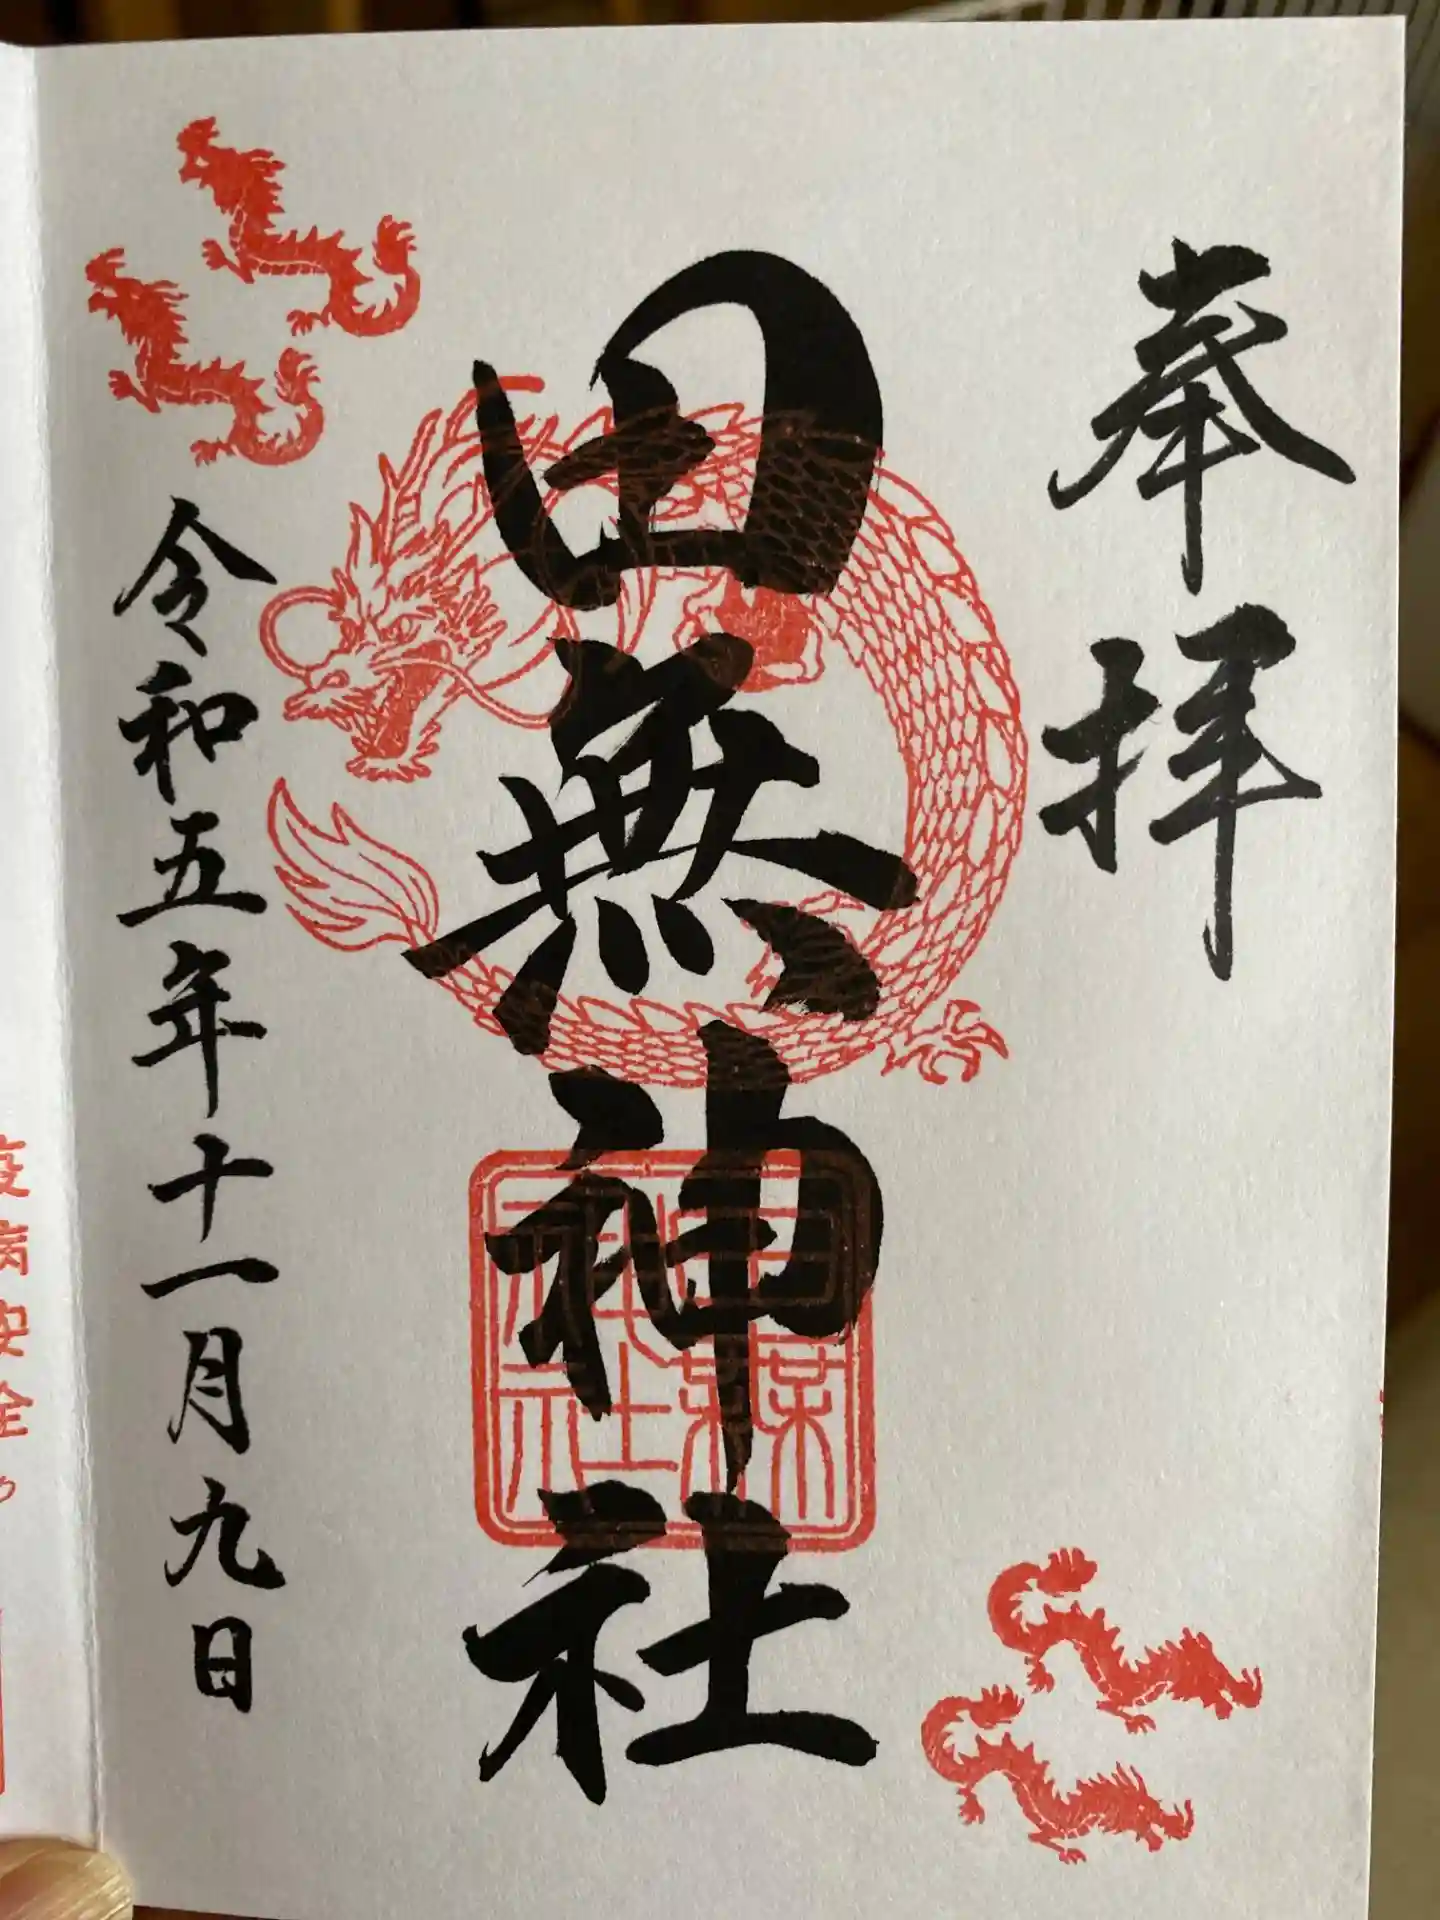 奉拝
田無神社
令和五年十一月九日
病安全